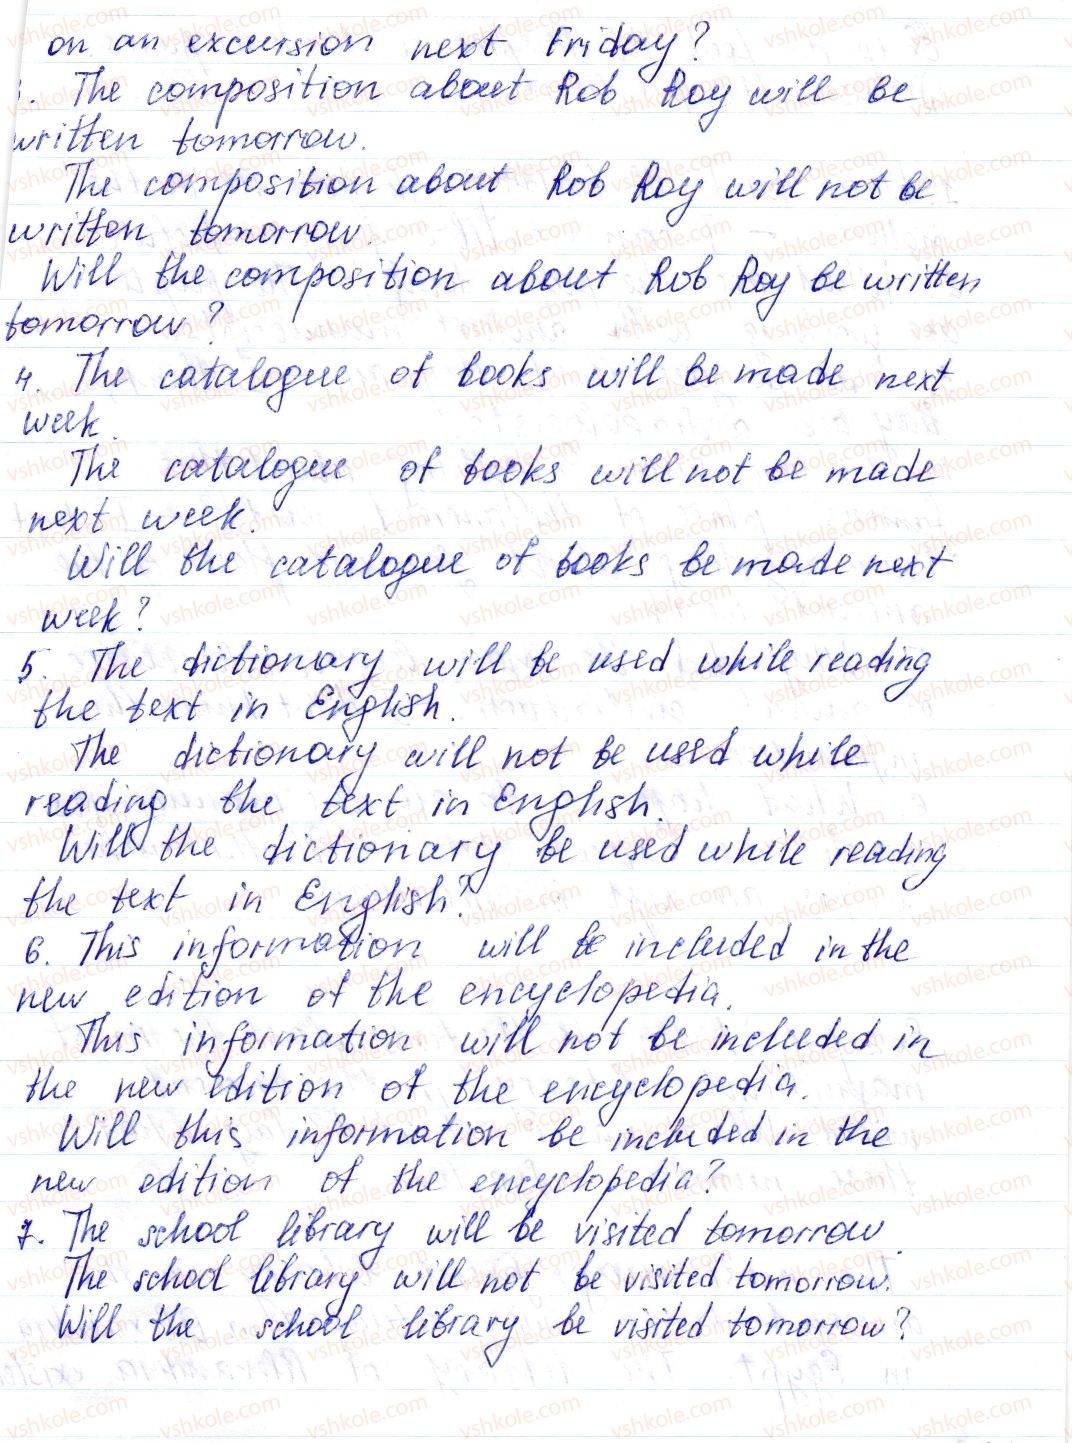 on an excursion next Friday?
. The composition about Rob Roy will be
written tomorrow.
The composition about Rob Roy will not be
written tomorrow.
Will the composition about Rob Roy be written
tomorrow?
4. The catalogue of books will be made next
week.
The catalogue of books will not be made
next week.
Will the catalogue of books be made next
week?
5. The dictionary will be used while reading
the text in English.
The dictionary will not be used while
reading the text in English.
Will the dictionary be used while reading
the text in English?
6. This information will be included in the
new edition of the encyclopedia.
This information will not be included in
the new edition of the encyclopedia.
Will this information be included in the
new edition of the encyclopedia?
7. The school library will be visited tomorrow.
The school library will not be visited tomorrow.
Will the school library be visited tomorrow?
vshkole.com